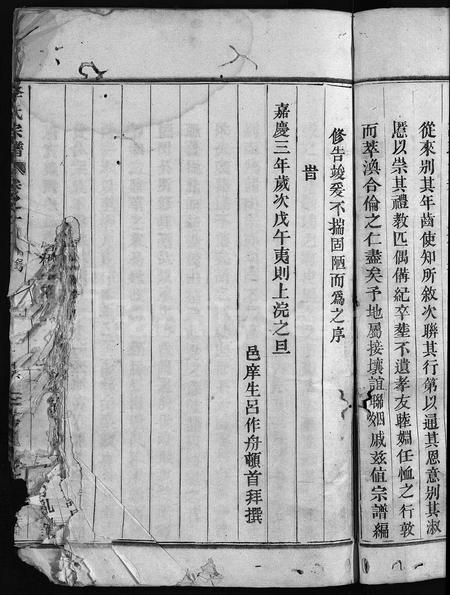 從來别其年齒使知所敘次聯其行第以通其恩意别其淑
慝以崇其禮教匹偶偹紀卒塟不遺孝友睦婣任恤之行敦
而萃渙合倫之仁盡矣予地屬接壤誼聯姻戚兹值宗譜編
修告竣爰不揣固陋而爲之序
旹
嘉慶三年歲次戊午夷則上浣之旦
邑庠生呂作舟頓首拜撰
氏宗譜